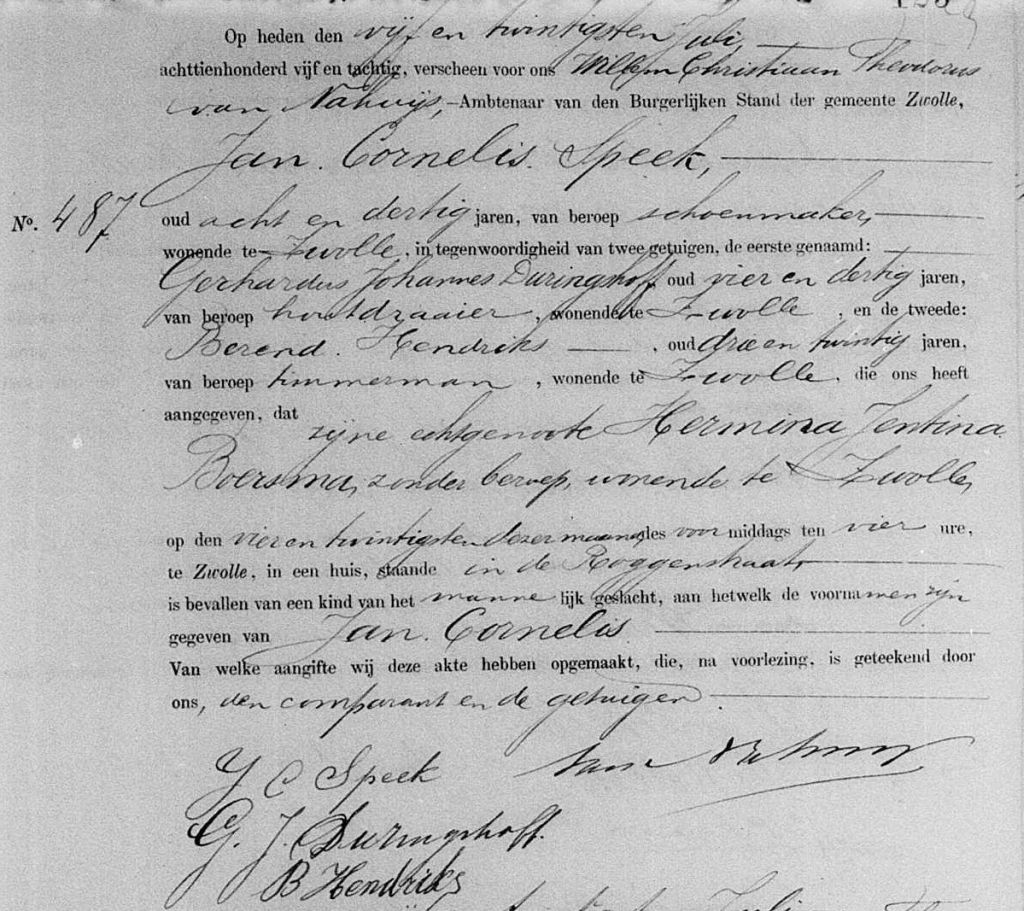 Op heden den vijf en twintigsten Juli,
achttienhonderd vijf en tachtig, verscheen voor ons Willem Christiaan Theodorus
van Nahuijs, Ambtenaar van den Burgerlijken Stand der gemeente Zwolle,
Jan. Cornelis. Speek,
No. 487
oud acht en dertig jaren, van beroep schoenmaker,
wonende te Zwolle, in tegenwoordigheid van twee getuigen, de eerste genaamd:
Gerhardus Johannes Duringshoff, oud vier en dertig jaren,
van beroep houtdraaier, wonende te Zwolle, en de tweede:
Berend. Hendriks, oud drie en twintig jaren,
van beroep timmerman, wonende te Zwolle, die ons heeft
aangegeven, dat
zijne echtgenoote Hermina Jentina
Boersma, zonder beroep, wonende te Zwolle,
op den vier en twintigsten dezer maand des voormiddags ten vier ure,
te Zwolle, in een huis, staande in de Roggenstraat,
is bevallen van een kind van het mannelijk geslacht, aan hetwelk de voornamen zijn
gegeven van Jan. Cornelis.
Van welke aangifte wij deze akte hebben opgemaakt, die, na voorlezing, is geteekend door
ons, den comparant en de getuigen.
J C Speek
G. J. Duringshoff.
B Hendriks